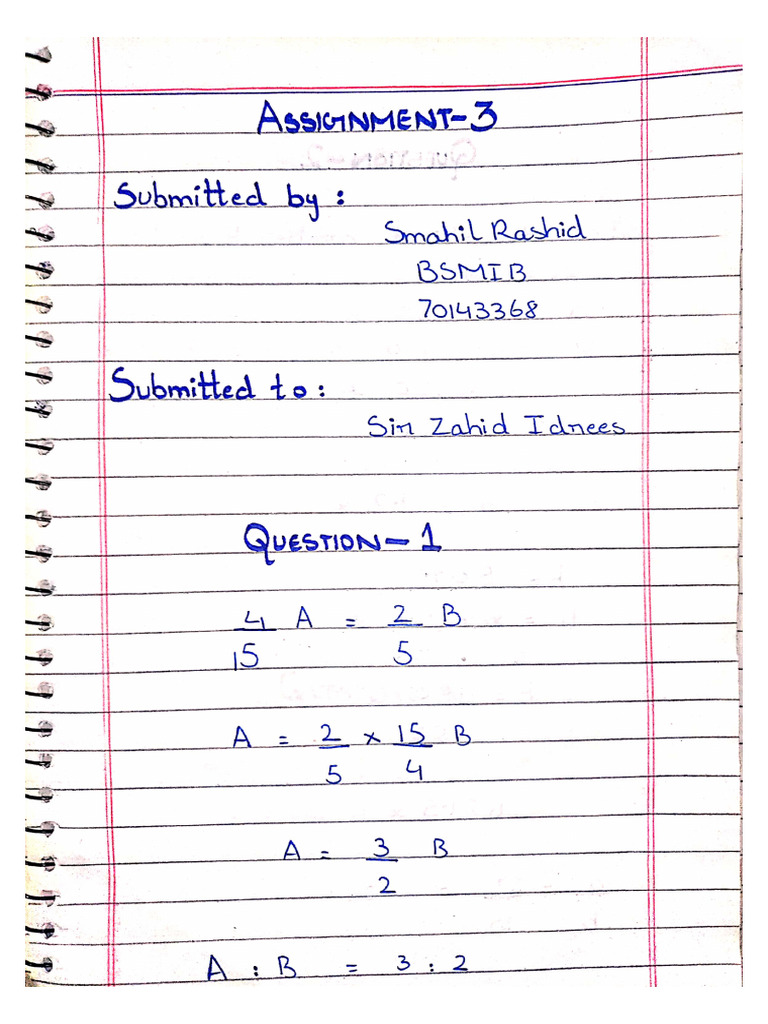 ASSIGNMENT-3
Submitted by :
Smahil Rashid
BSMIB
70143368
Submitted to :
Sir Zahid Idrees
QUESTION-1
4/15 A = 2/5 B
A = 2/5 × 15/4 B
A = 3/2 B
A : B = 3 : 2